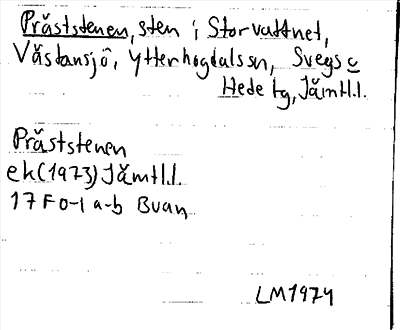 Präststenen, sten i Storvattnet,
Västansjö, Ytterhogdals sn, Svegs o
Hede tg, Jämtl.l.
Präststenen
ek (1973) Jämtl.l.
17F 0-1 a-b Buan
LM 1974